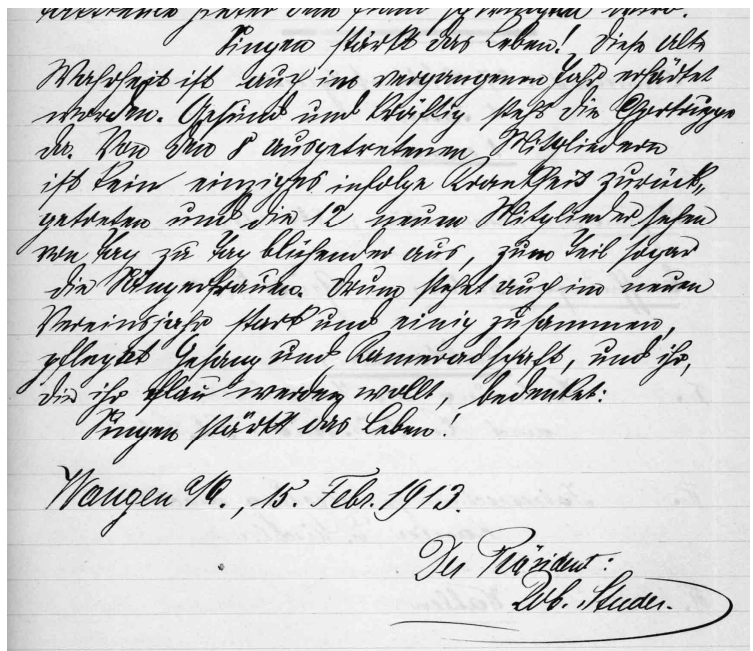 hinter dem
Singen stärkt das Leben! Diese alte
Wahrheit ist auch im vergangenen Jahr erhärtet
worden. Gesund und kräftig steht die Chortruppe
da. Von den 8 ausgetretenen Mitgliedern
ist kein einziges infolge Krankheit zurück„
getreten und die 12 neuen Mitglieder sehen
von Tag zu Tag blühender aus, zum Teil sogar
die Sängerfrauen. Drum stehet auch im neuen
Vereinsjahr stark und einig zusammen,
pfleget Gesang und Kameradschaft, und ihr,
die ihr flau werden wollt, bedenket:
Singen stärkt das Leben!
Wangen a/A., 15. Febr. 1913.
Der Präsident:
Rob. Studer.